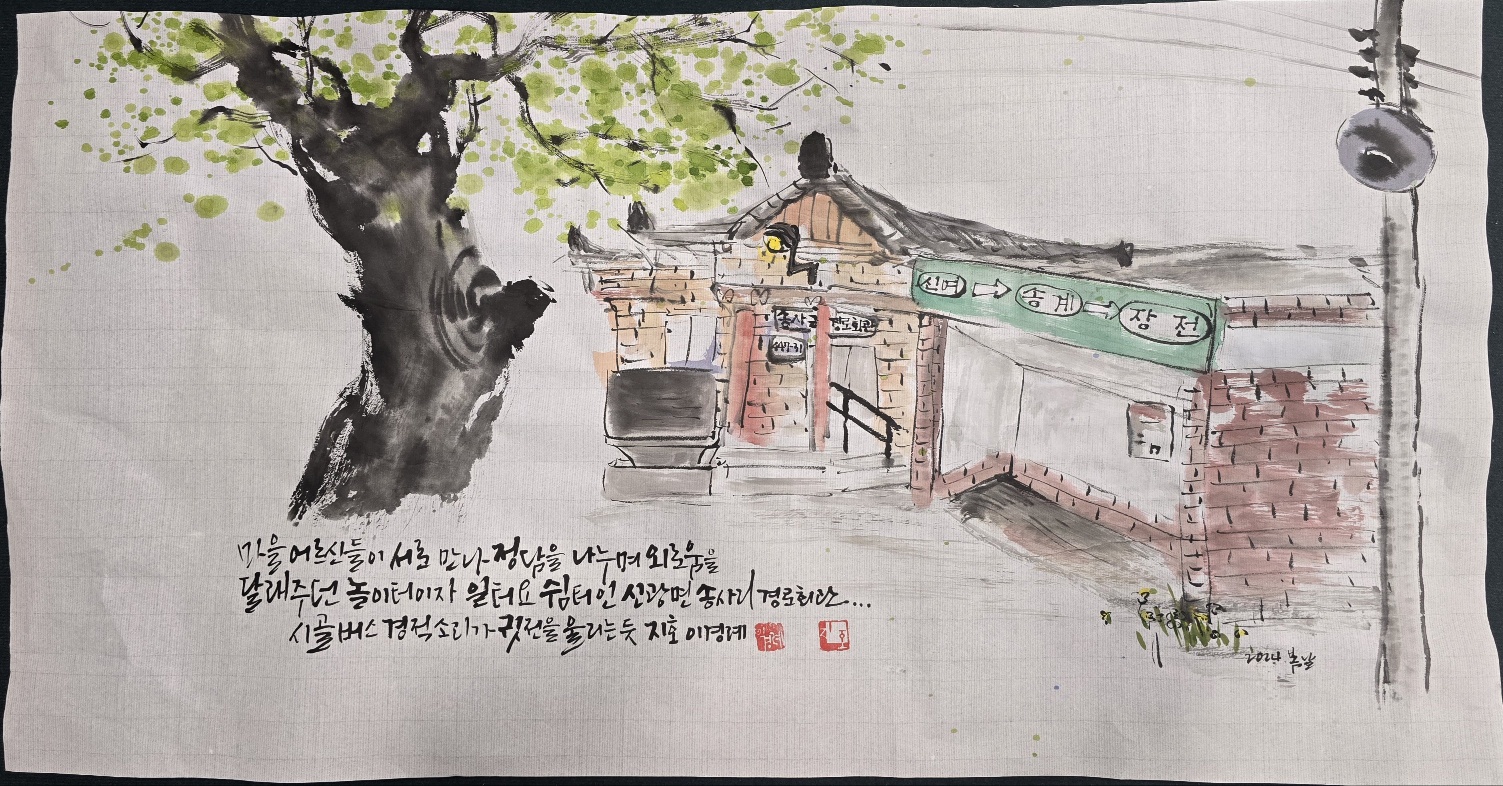 신여 ⇨ 송계 ⇨ 장전
송사리 경로회관
447-31
마을 어르신들이 서로 만나 정담을 나누며 외로움을
달래주던 놀이터이자 일터요 쉼터인 신광면 송사리 경로회관...
시골버스 경적소리가 귓전을 울리는듯 지호 이경례
지호
2024 봄날